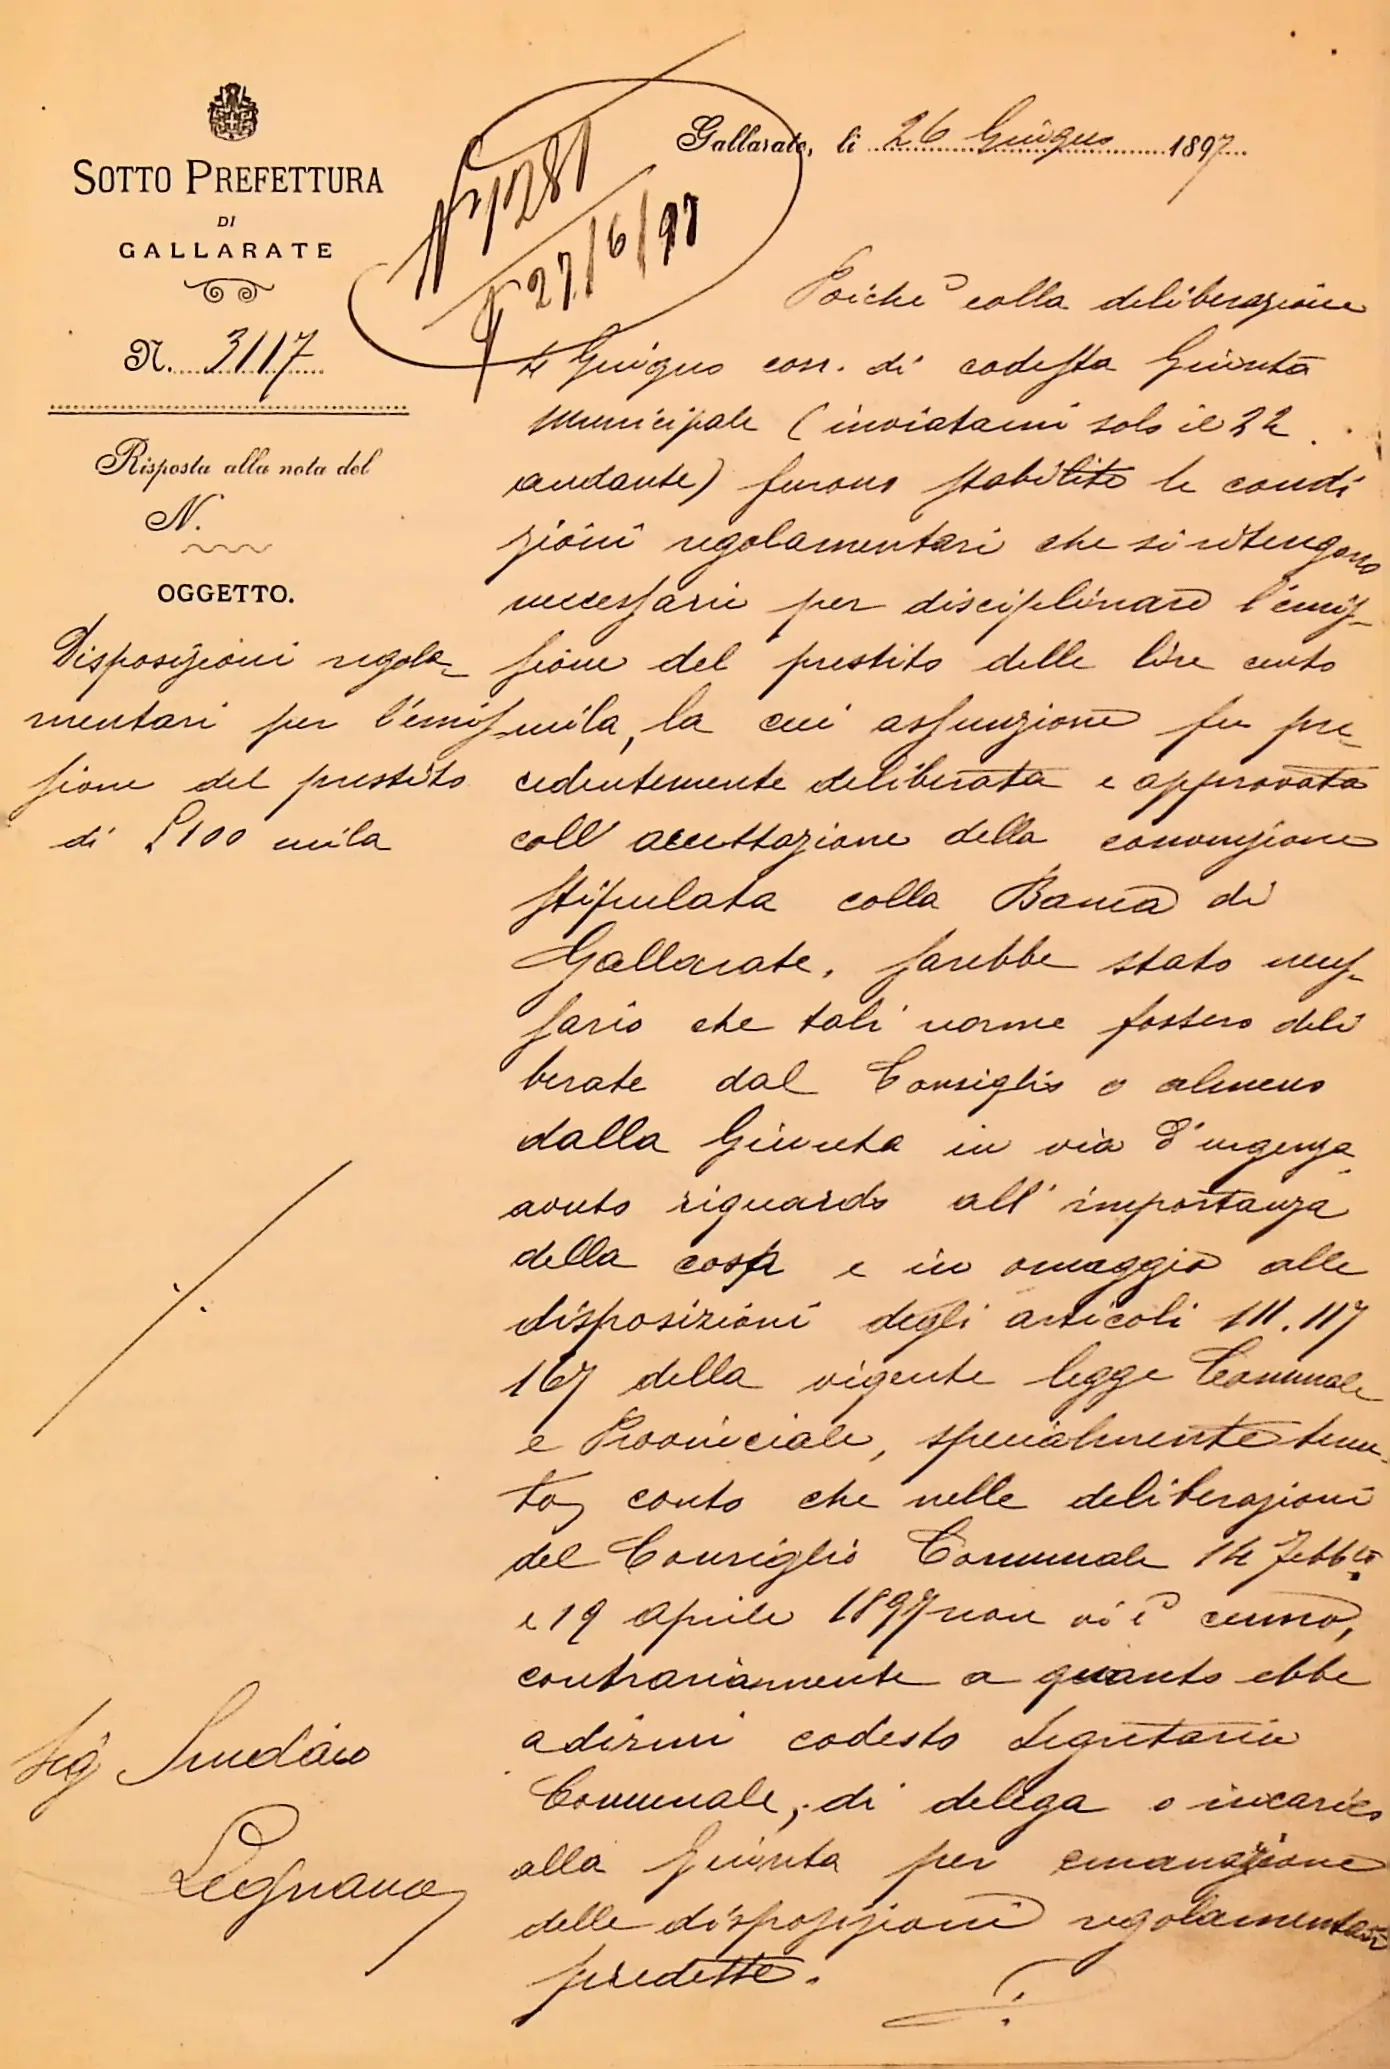 SOTTO PREFETTURA
DI
GALLARATE
N. 3117
Risposta alla nota del
N.
OGGETTO.
Disposizioni regola-
mentari per l'emis-
sione del prestito
di £100 mila
Sig Sindaco
Legnano
N 1281
27/6/97
Gallarate, li 26 Giugno 1897
Poiché colla deliberazione
4 Giugno corr. di codesta Giunta
Municipale (inviatami solo il 22
andante) furono stabilite le condi
zioni regolamentari che si ritengono
necessarie per disciplinare l'emis-
sione del prestito delle lire cento
mila, la cui assunzione fu pre-
cedentemente deliberata e approvata
coll'accettazione della convenzione
stipulata colla Banca di
Gallarate, sarebbe stato neces-
sario che tali norme fossero deli
berate dal Consiglio o almeno
dalla Giunta in via d'urgenza
avuto riguardo all'importanza
della cosa e in omaggio alle
disposizioni degli articoli 111. 117
167 della vigente legge Comunale
e Provinciale, specialmente tenu-
to conto che nelle deliberazioni
del Consiglio Comunale 14 Febbro
e 19 Aprile 1897 non vi è cenno,
contrariamente a quanto ebbe
a dirmi codesto Segretario
Comunale, di delega o incarico
alla Giunta per emanazione
delle disposizioni regolamentari
predette.